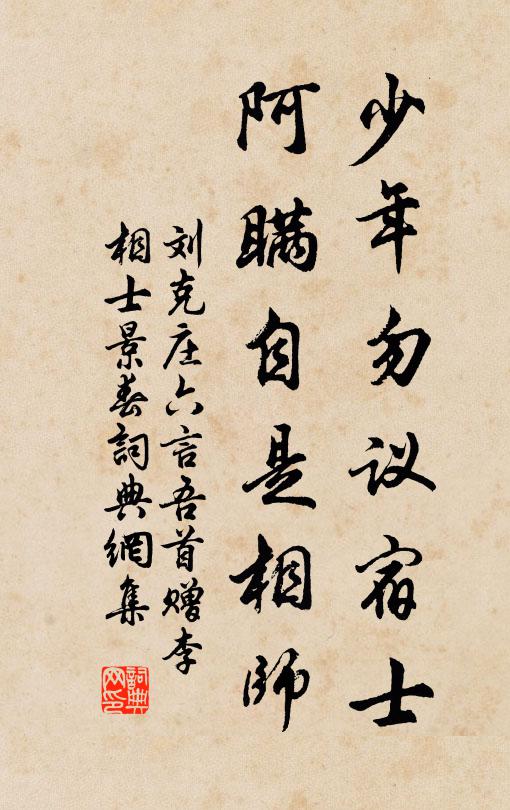 少年勿议宿士
阿瞒自是相师
刘克庄六言吾首赠李
相士景春詞典網集
詞典网印